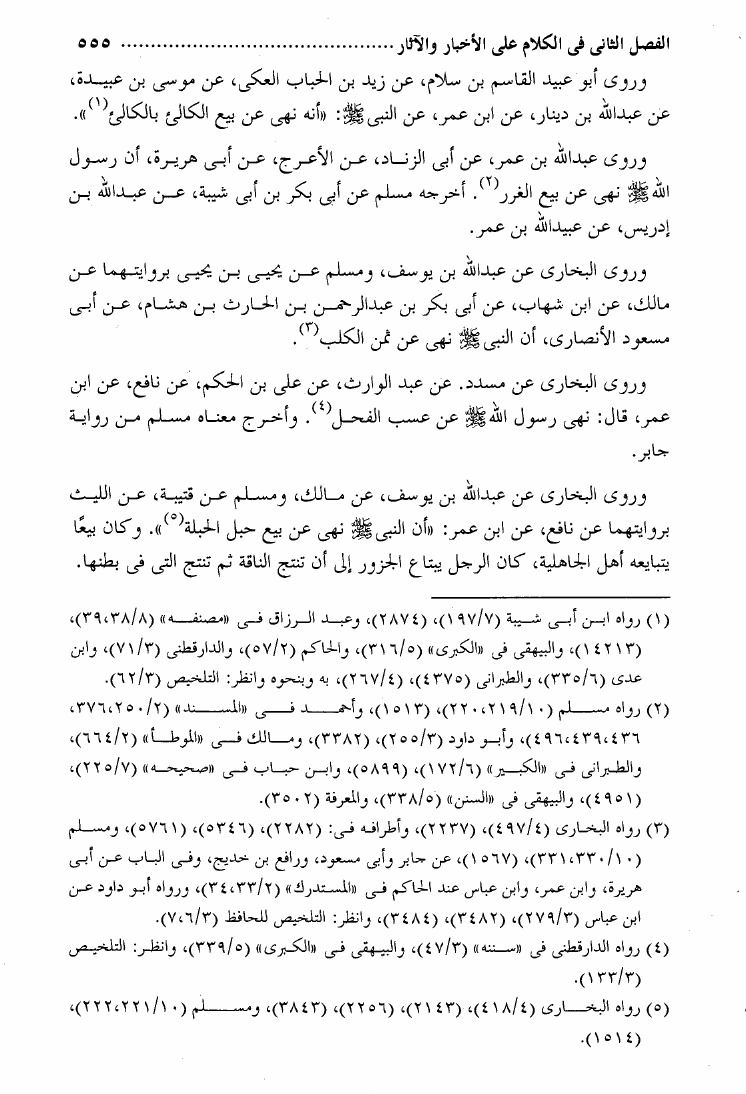 الفصل الثانى فى الكلام على الأخبار والآثار ............................................. ٥٥٥
وروى أبو عبيد القاسم بن سلام، عن زيد بن الحباب العكى، عن موسى بن عبيدة،
عن عبدالله بن دينار، عن ابن عمر، عن النبى ﷺ: «أنه نهى عن بيع الكالئ بالكالئ(١)».
وروى عبدالله بن عمر، عن أبى الزناد، عن الأعرج، عن أبى هريرة، أن رسول
الله ﷺ نهى عن بيع الغرر(٢). أخرجه مسلم عن أبى بكر بن أبى شيبة، عن عبدالله بن
إدريس، عن عبيدالله بن عمر.
وروى البخارى عن عبدالله بن يوسف، ومسلم عن يحيى بن يحيى بروايتهما عن
مالك، عن ابن شهاب، عن أبى بكر بن عبدالرحمن بن الحارث بن هشام، عن أبى
مسعود الأنصارى، أن النبى ﷺ نهى عن ثمن الكلب(٣).
وروى البخارى عن مسدد. عن عبد الوارث، عن على بن الحكم، عن نافع، عن ابن
عمر، قال: نهى رسول الله ﷺ عن عسب الفحل(٤). وأخرج معناه مسلم من رواية
جابر.
وروى البخارى عن عبدالله بن يوسف، عن مالك، ومسلم عن قتيبة، عن الليث
بروايتهما عن نافع، عن ابن عمر: «أن النبى ﷺ نهى عن بيع حبل الحبلة(٥)». وكان بيعًا
يتبايعه أهل الجاهلية، كان الرجل يبتاع الجزور إلى أن تنتج الناقة ثم تنتج التى فى بطنها.
(١) رواه ابن أبى شيبة (١٩٧/٧)، (٢٨٧٤)، وعبد الرزاق فى «مصنفه» (٣٩،٣٨/٨)،
(١٤٢١٣)، والبيهقى فى «الكبرى» (٣١٦/٥)، والحاكم (٥٧/٢)، والدارقطنى (٧١/٣)، وابن
عدى (٣٣٥/٦)، والطبرانى (٤٣٧٥)، (٢٦٧/٤)، به وبنحوه وانظر: التلخيص (٦٢/٣).
(٢) رواه مسلم (٢٢٠،٢١٩/١٠)، (١٥١٣)، وأحمد فى «المسند» (٣٧٦،٢٥٠/٢،
٤٩٦،٤٣٩،٤٣٦)، وأبو داود (٢٥٥/٣)، (٣٣٨٢)، ومالك فى «الموطأ» (٦٦٤/٢)،
والطبرانى فى «الكبير» (١٧٢/٦)، (٥٨٩٩)، وابن حباب فى «صحيحه» (٢٢٥/٧)،
(٤٩٥١)، والبيهقى فى «السنن» (٣٣٨/٥)، والمعرفة (٣٥٠٢).
(٣) رواه البخارى (٤٩٧/٤)، (٢٢٣٧)، وأطرافه فى: (٢٢٨٢)، (٥٣٤٦)، (٥٧٦١)، ومسلم
(٣٣١،٣٣٠/١٠)، (١٥٦٧)، عن جابر وأبى مسعود، ورافع بن خديج، وفى الباب عن أبى
هريرة، وابن عمر، وابن عباس عند الحاكم فى «المستدرك» (٣٤،٣٣/٢)، ورواه أبو داود عن
ابن عباس (٢٧٩/٣)، (٣٤٨٢)، (٣٤٨٤)، وانظر: التلخيص للحافظ (٧،٦/٣).
(٤) رواه الدارقطنى فى «سننه» (٤٧/٣)، والبيهقى فى «الكبرى» (٣٣٩/٥)، وانظر: التلخيص
(١٣٣/٣).
(٥) رواه البخارى (٤١٨/٤)، (٢١٤٣)، (٢٢٥٦)، (٣٨٤٣)، ومسلم (٢٢٢،٢٢١/١٠)،
(١٥١٤).